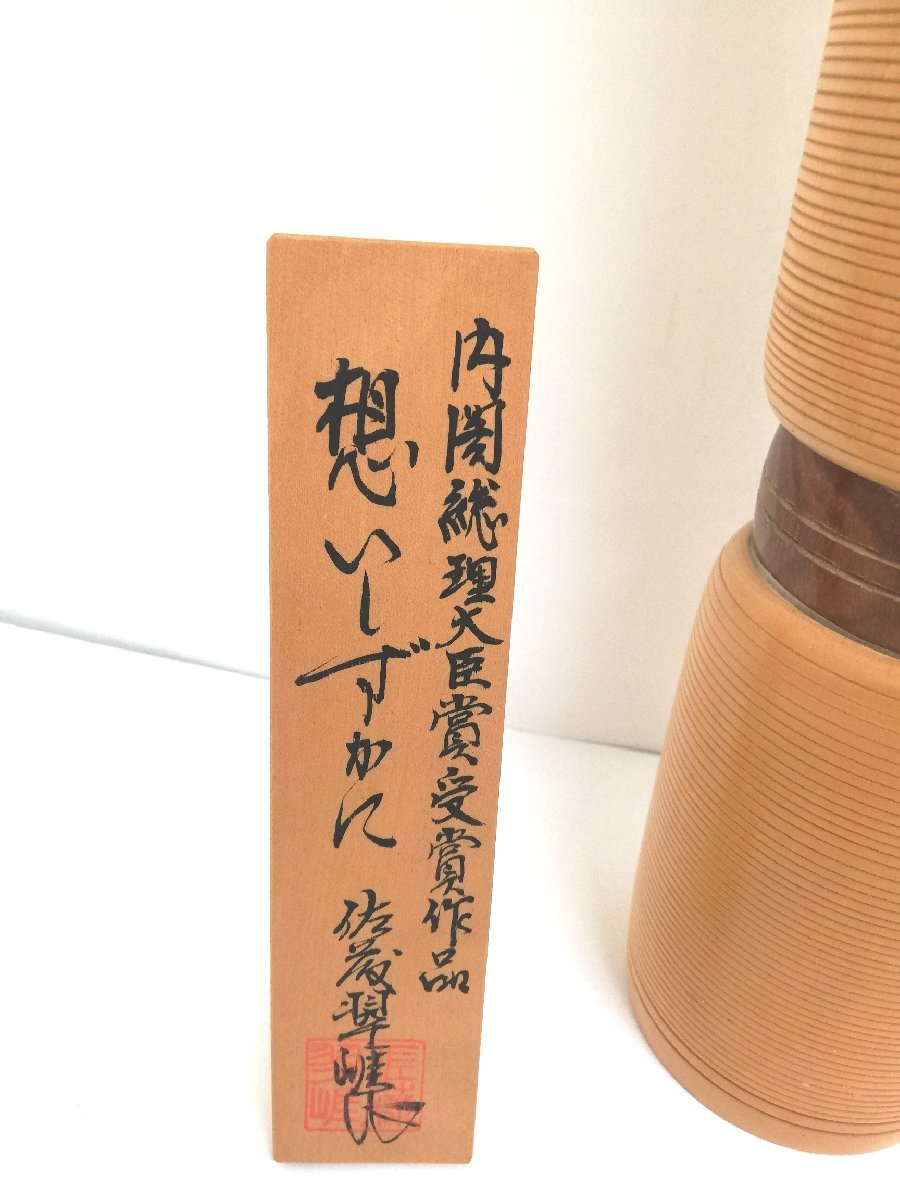 内閣総理大臣賞受賞作品
想いしずかに
佐藤翠崖作